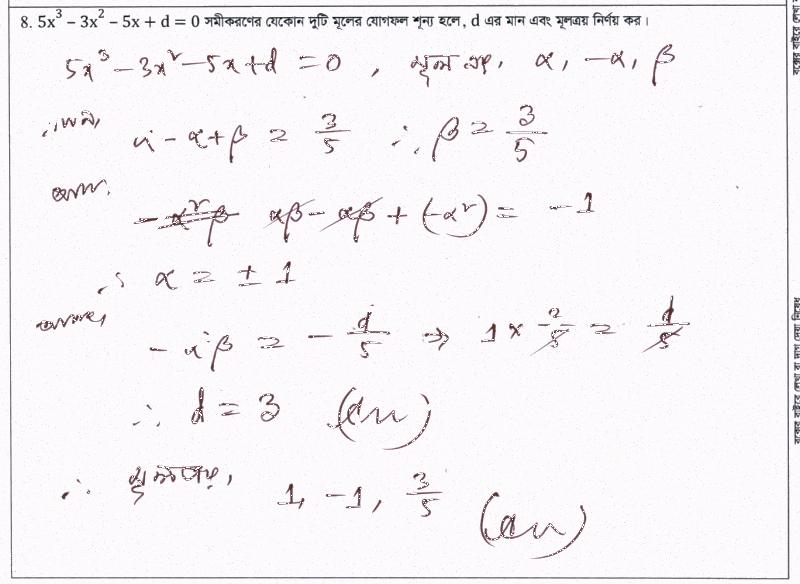 8. 5x³ − 3x² − 5x + d = 0 সমীকরণের যেকোন দুটি মূলের যোগফল শূন্য হলে, d এর মান এবং মূলত্রয় নির্ণয় কর।
5x³ − 3x² − 5x + d = 0 , α, −α, β
α − α + β = 3/5 ∴ β = 3/5
αβ − αβ + (−α²) = −1
∴ α = ± 1
− α²β = − d/5 ⇒ 1 × 3/5 = d/5
∴ d = 3 (Ans)
∴ মূলত্রয়, 1, −1, 3/5 (Ans)